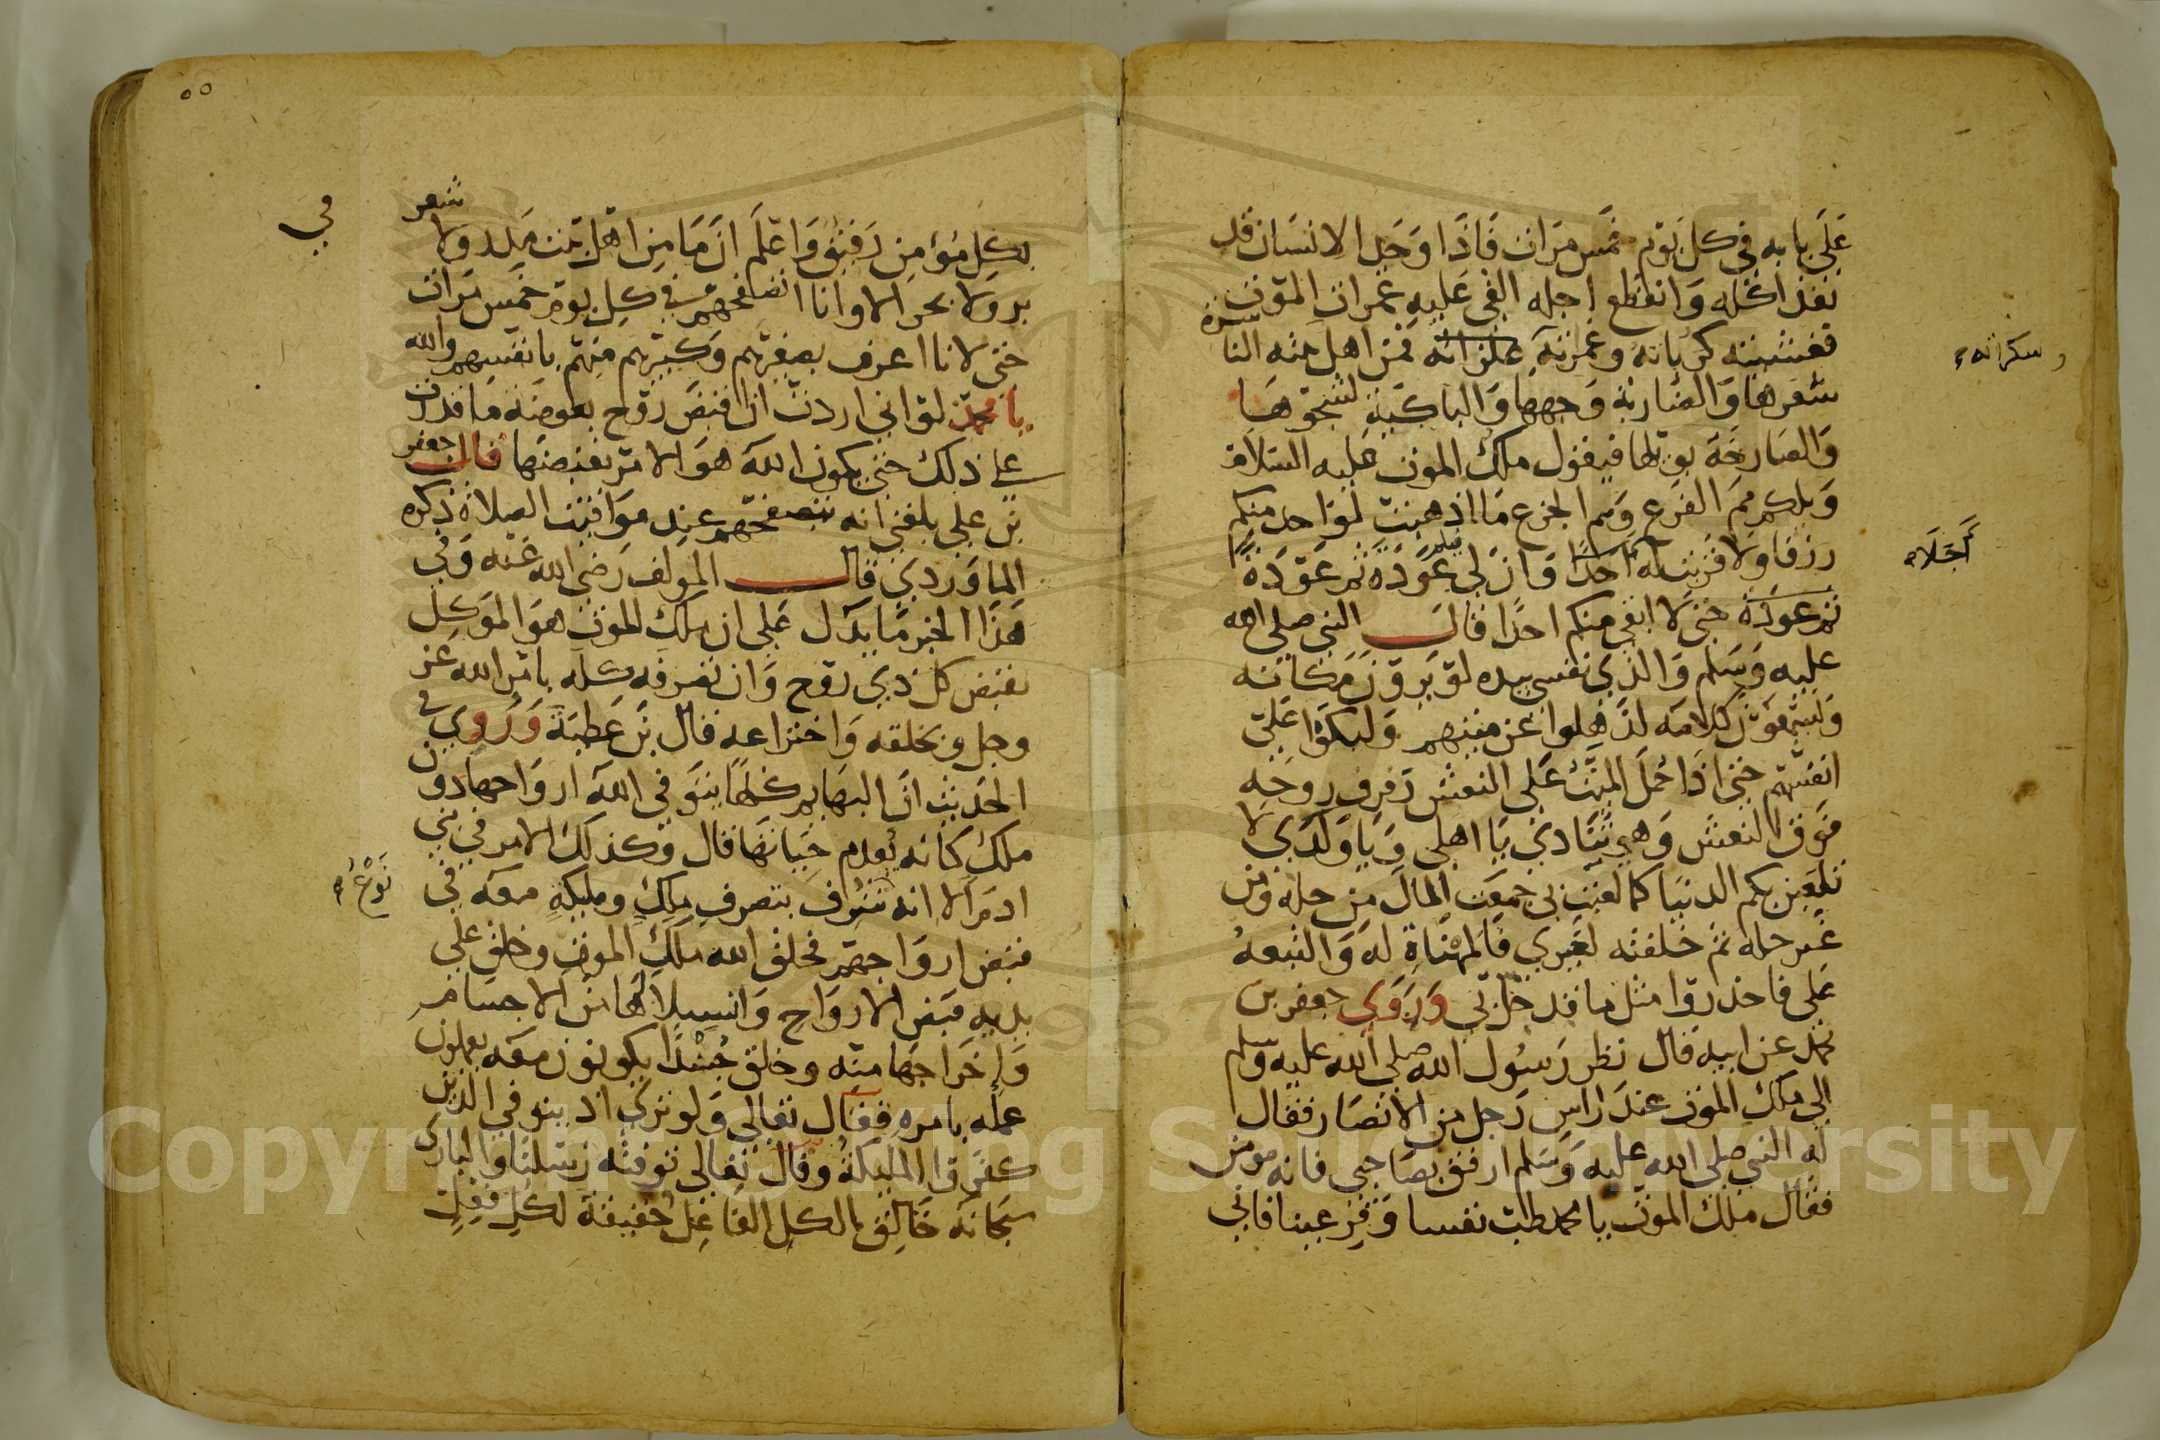 على بابه في كل يوم خمس مرات فاذا وجد الانسان قد
نفذ اكله وانقطع اجله القى عليه غمرات الموت
فغشيته كرباته وغمرته غمراته فمن اهل بيته الناشرة
وسكراته
شعرها والضاربة وجهها والباكية لشجوها
والصارخة بويلها فيقول ملك الموت عليه السلام
ويلكم مم الفزع ومم الجزع ما اذهبت لواحد منكم
رزقا ولا قربت له اجلا وان لي فيكم عودة ثم عودة
أجلا
ثم عودة حتى لا ابقي منكم احدا قال النبي صلى الله
عليه وسلم والذي نفسي بيده لو يرون مكانه
ويسمعون كلامه لذهلوا عن ميتهم ولبكوا على
انفسهم حتى اذا حمل الميت على النعش رفرف روحه
فوق النعش وهي تنادي يا اهلي ويا ولدي لا
تلعبن بكم الدنيا كما لعبت بي جمعت المال من حله ومن
غير حله ثم خلفته لغيري فالمهناة له والتبعة
علي فاحذروا مثل ما قد حل بي وروي جعفر بن
محمد عن ابيه قال نظر رسول الله صلى الله عليه وسلم
الى ملك الموت عند راس رجل من الانصار فقال
له النبي صلى الله عليه وسلم ارفق بصاحبي فانه مومن
فقال ملك الموت يا محمد طب نفسا وقر عينا فاني
٥٥
بكل مؤمن رفيق واعلم ان ما من اهل بيت مدر ولا شعر
في
بر ولا بحر الا وانا اتصفحهم في كل يوم خمس مرات
حتى لانا اعرف بصغيرهم وكبيرهم منهم بانفسهم والله
يا محمد لو اني اردت ان اقبض روح بعوضة ما قدرت
على ذلك حتى يكون الله هو الامر بقبضها قال جعفر
بن علي بلغني انه يتصفحهم عند مواقيت الصلاة ذكره
الماوردي قال المولف رضي الله عنه وفي
هذا الخبر ما يدل على ان ملك الموت هو الموكل
بقبض كل ذي روح وان تصرفه كله بامر الله عز
وجل وبخلقه واختراعه قال بن عطية وروي في
الحديث ان البهايم كلها يتوفى الله ارواحها دون
ملك كانه يعدم حياتها قال وكذلك الامر في بني
ادم الا انه شرف بتصرف ملك ومليكة معه في
نوع
قبض ارواحهم فخلق الله ملك الموت وخلق على
يديه قبض الارواح وانسلالها من الاجسام
واخراجها منه وخلق جندا يكونون معه يعملون
عمله بامره فقال تعالى ولو ترى اذ يتوفى الذين
كفروا المليكة وقال تعالى توفته رسلنا والباري
سبحانه خالق الكل الفاعل حقيقة لكل فعل
Copyright © King Saud University
1957